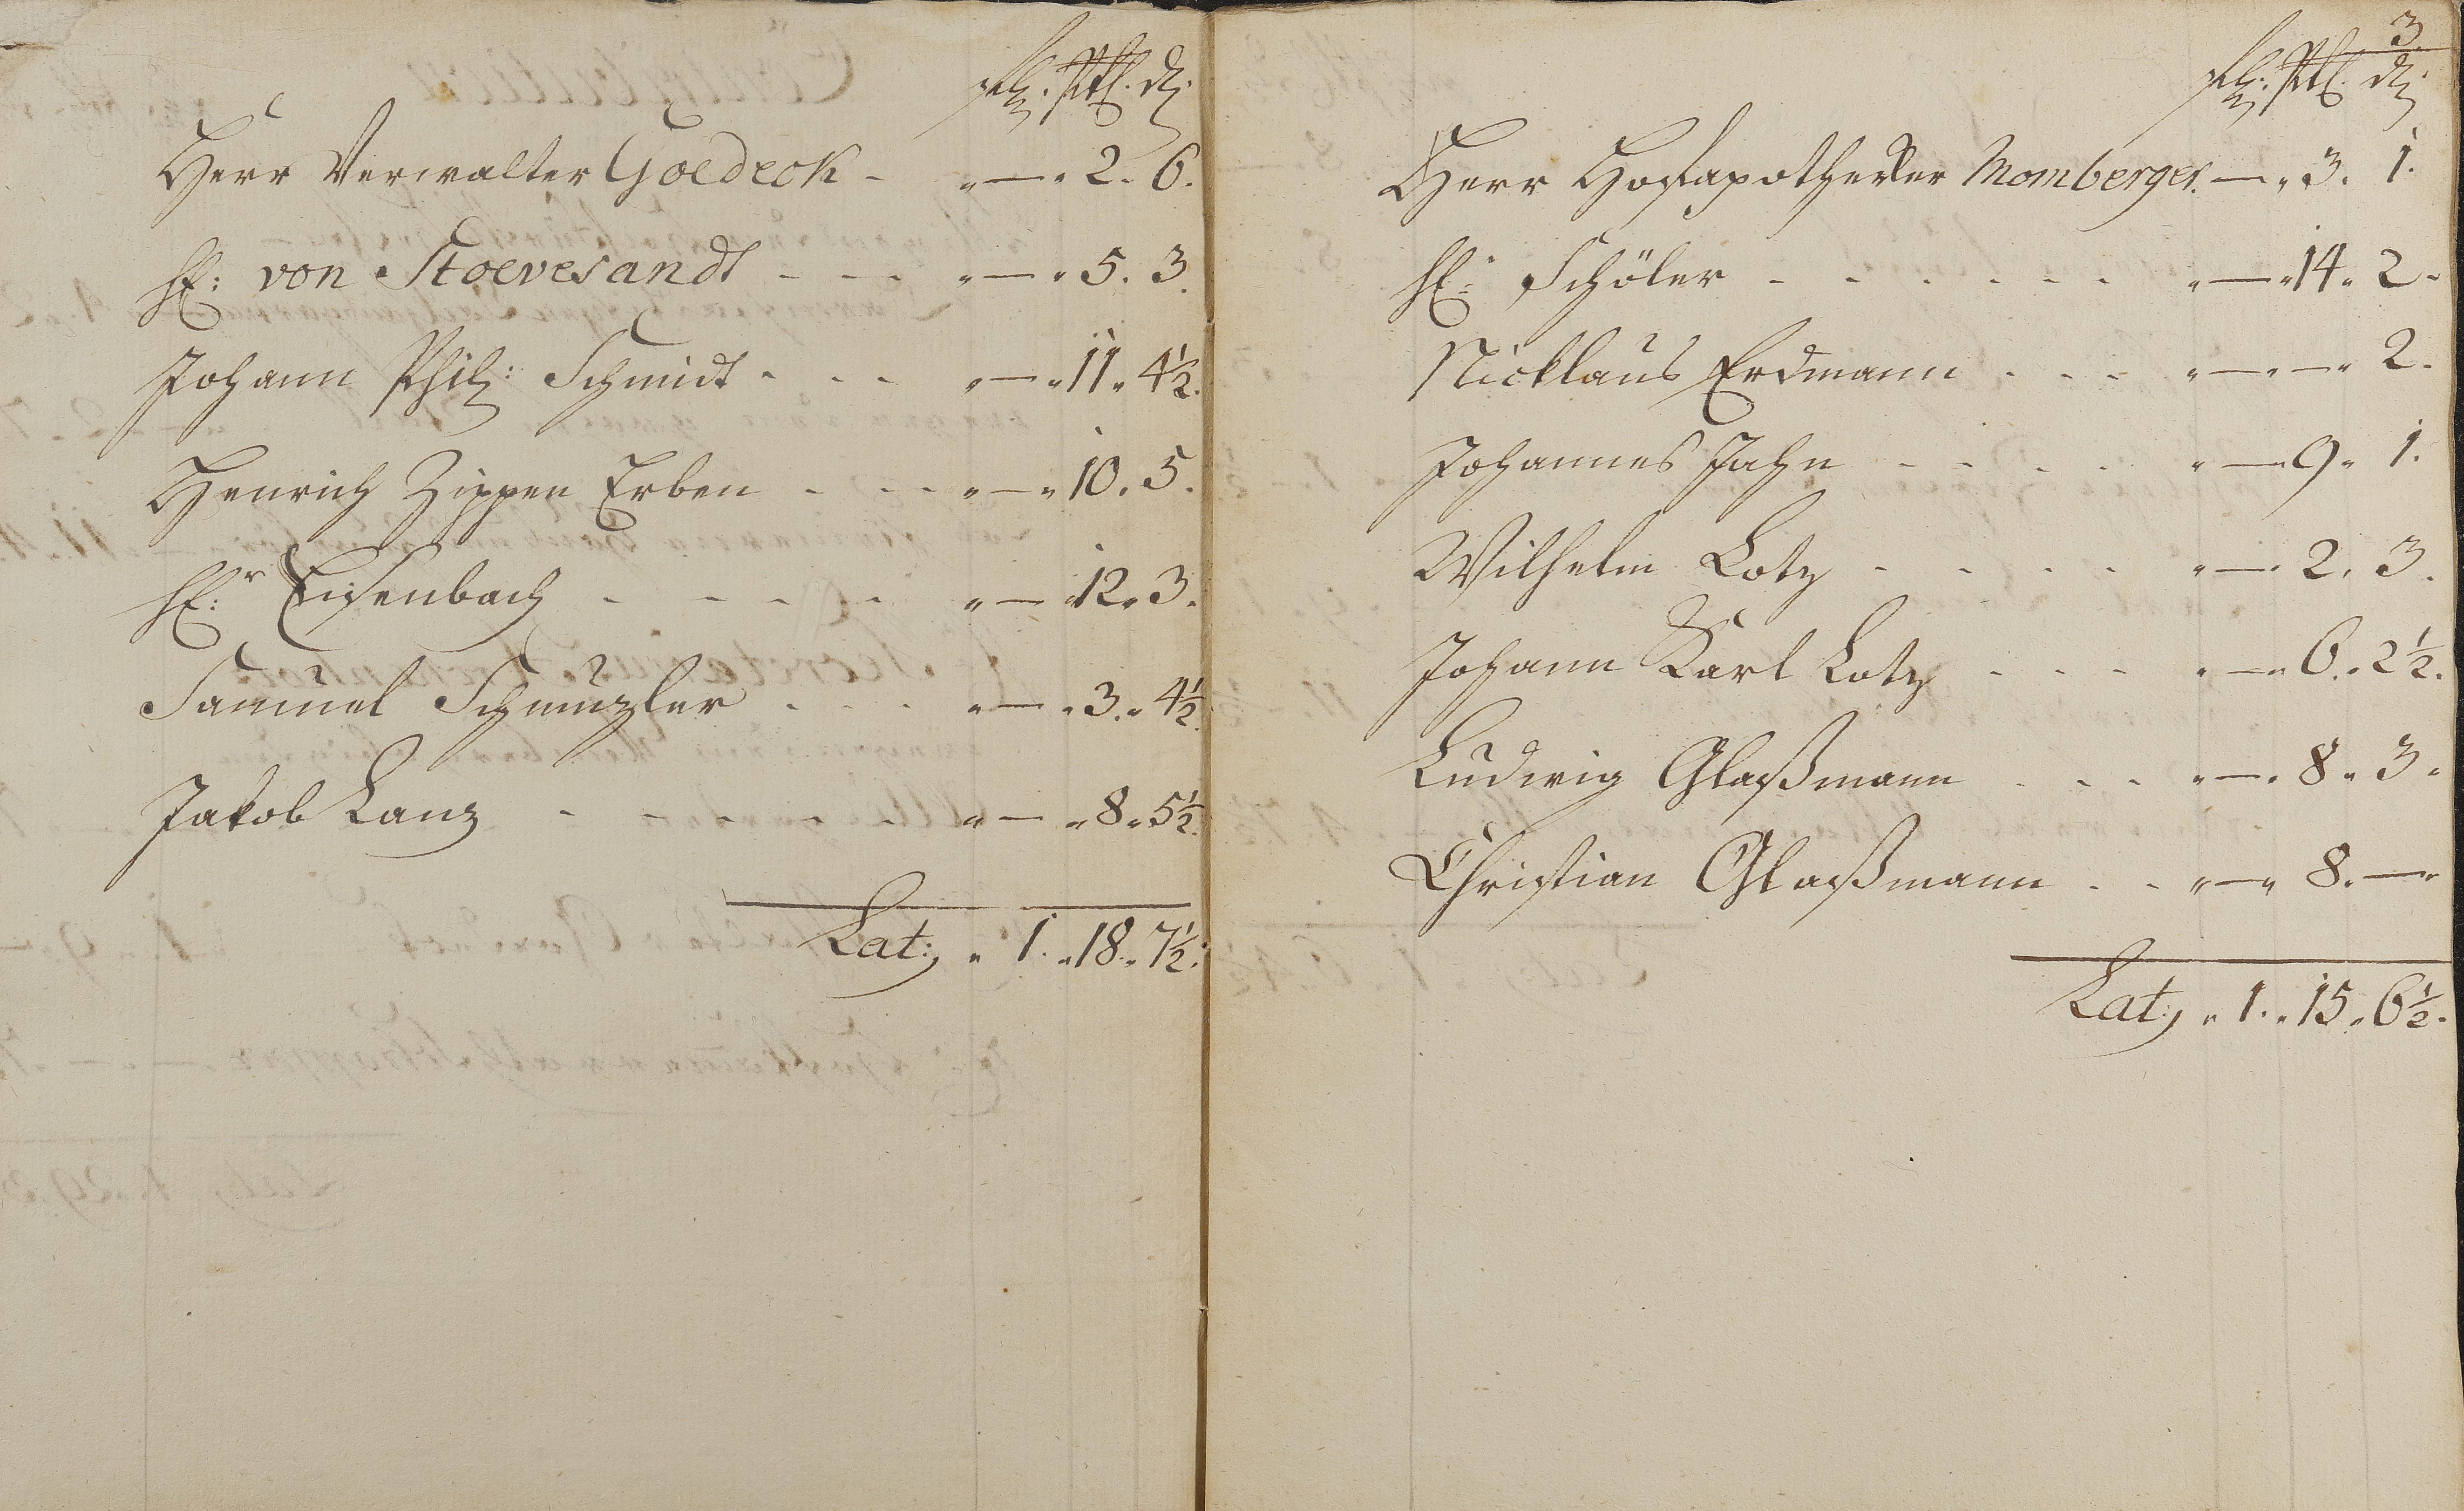 fl: Alb. ₰.
Herr Verwalter Goedeck - „ — „ 2. 6.
H: von Stoevesandt - - - „ — „ 5. 3.
Johann Phil: Schmidt - - - „ — „ 11. 4½.
Henrich Zippen Erben - - - „ — „ 10. 5.
H:r Eisenbach - - - - „ — „ 12. 3.
Samuel Schmuzler - - - „ — „ 3. 4½.
Jakob Lanz - - - - - „ — „ 8. 5½.
Lat: „ 1. 18. 7½.
3.
fl: Alb. ₰.
Herr Hofapotheker Momberger. — „ 3. 1.
H: Schöler - - - - - - „ — „ 14. 2.
Nicklaus Erdmann - - - „ — „ — „ 2.
Johannes Jahn - - - - „ — „ 9. 1.
Wilhelm Lotz - - - - „ — „ 2. 3.
Johann Karl Lotz - - - „ — „ 6. 2½.
Ludwig Glaßmann - - - „ — „ 8. 3.
Christian Glaßmann - - „ — „ 8. —
Lat: „ 1. 15. 6½.